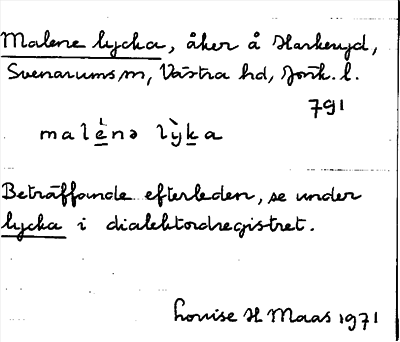 Malene lycka, åker å Harkeryd,
Svenarums sn, Västra hd, Jönk. l.
791
malènə lỳka
Beträffande efterleden, se under
lycka i dialektordregistret.
Louise H Maas 1971